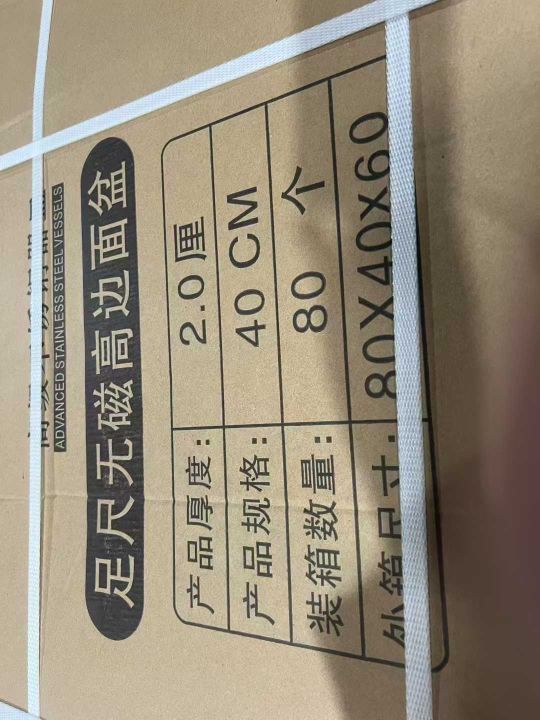 高级不锈钢器皿
ADVANCED STAINLESS STEEL VESSELS
足尺无磁高边面盆
产品厚度: 2.0厘
产品规格: 40 CM
装箱数量: 80 个
外箱尺寸: 80X40X60